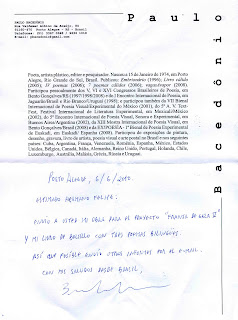 Paulo Bacedônio
PAULO BACEDONIO
Porto Alegre - RS - Brasil
Poeta, artista plástico, editor e pesquisador. Nasceu a 15 de janeiro de 1974, em Porto
Alegre, Rio Grande do Sul, Brasil. Publicou: Embriondário (1996), Livres
(2005), 13 poemas (2006), 7 poemas cálidos (2006), (2008).
Participou pessoalmente dos V, VI e XVI Congressos Brasileiros de Poesia, em
Bento Gonçalves/RS (1997/1998/2008) e do I Encontro Internacional de Poesia, em
Jaguarão/Brasil e Rio Branco/Uruguai (1998); e participou também da VII Bienal
Internacional de Poesia Visual/Experimental do México (2001), do 5º A.V. Text-
Fest, Festival Internacional de Literatura Experimental, em Mexicali/México
(2002), do XI Encontro Internacional de Poesia Visual, Sonora e Experimental, em
Buenos Aires (2002), da XIII Mostra Internacional de Poesia Visual, em Bento
Gonçalves/Brasil (2008) e da EXPOESIA - 1ª Bienal de Poesia Experimental
de Euskadi, em Euskadi/Espanha (2008). Participou de exposições de pintura,
desenho, gravura, livro de artista, poesia visual e arte postal no Brasil e nos seguintes
países: Cuba, Argentina, França, Venezuela, Romênia, Espanha, México, Estados
Unidos, Bélgica, Canadá, Itália, Alemanha, Reino Unido, Portugal, Holanda, Chile,
Luxemburgo, Austrália, Malásia, Grécia, Rússia e Uruguai.
Porto Alegre,
Envío a usted mi obra para el proyecto
y mi libro de bolsillo con tres poemas bilingües.
Así que posible envío otros infinitos por el e-mail.
Con mis saludos desde Brasil,